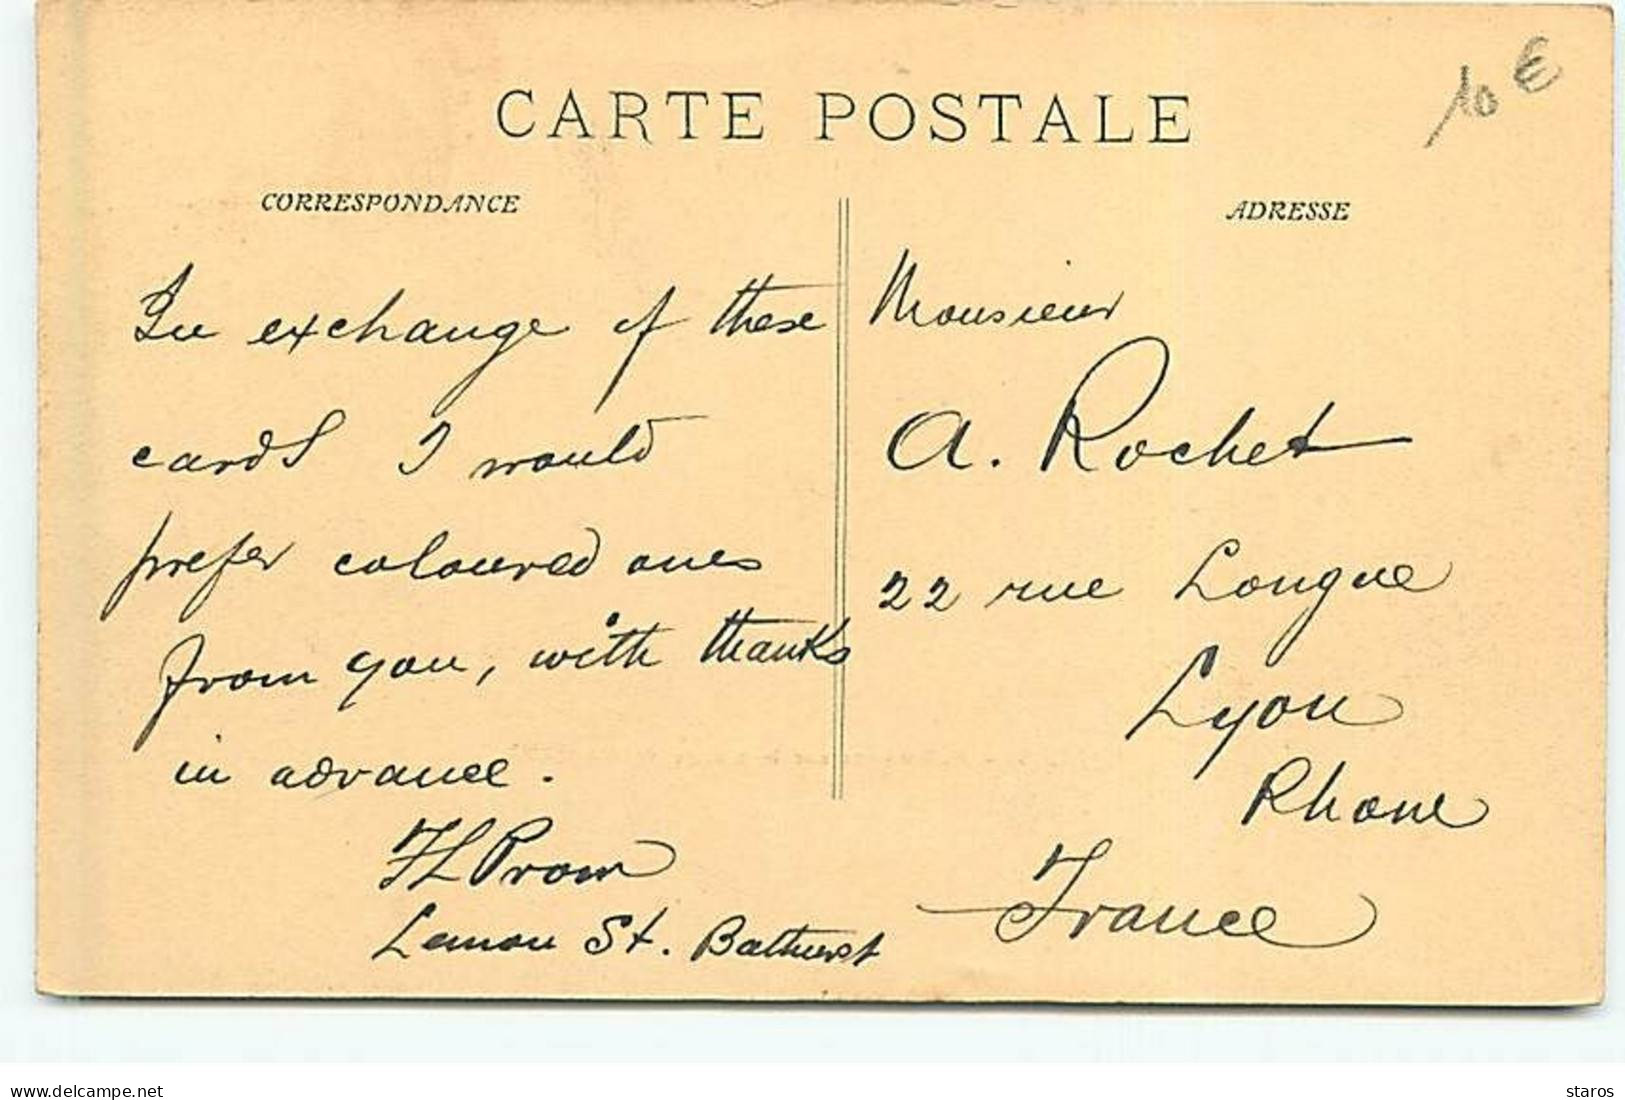 CARTE POSTALE
10 €
CORRESPONDANCE
In exchange of these
cards I would
prefer coloured ones
from you, with thanks
in advance.
Prom
Lemon St. Bathurst
ADRESSE
Monsieur
A. Rochet
22 rue Longue
Lyon
Rhone
France
delcampe.net
staros